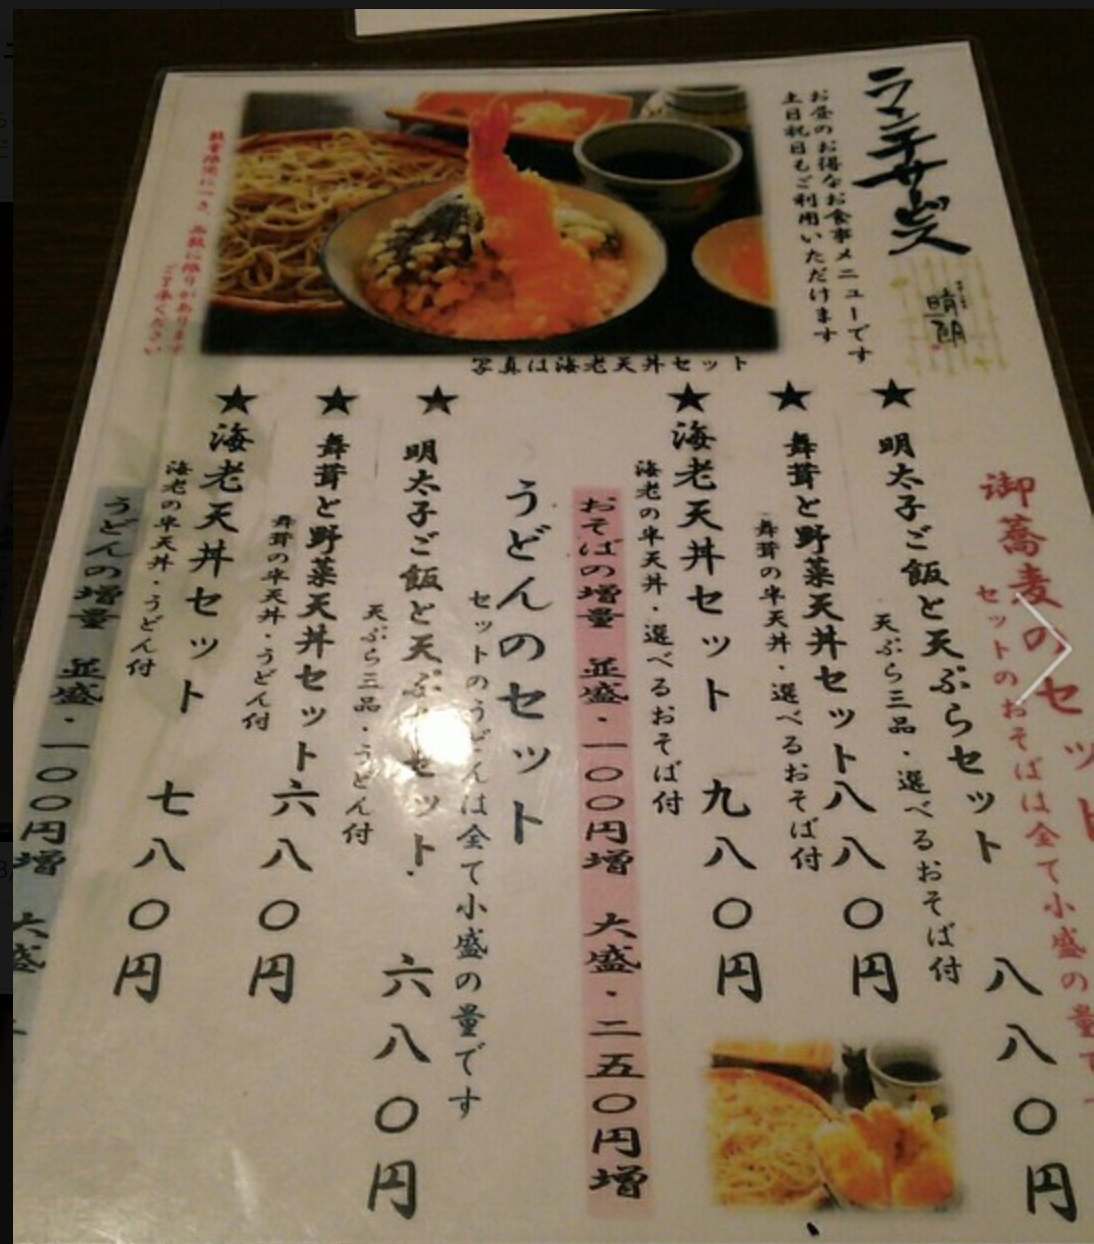 ランチサービス
晴朗
お昼のお得なお食事メニューです
土日祝日もご利用いただけます
写真は海老天丼セット
数量限定につき、品数に限りがあります
ご了承ください
御蕎麦のセット
セットのおそばは全て小盛の量で
★明太子ご飯と天ぷらセット 八八〇円
天ぷら三品・選べるおそば付
★舞茸と野菜天丼セット 八八〇円
舞茸の半天丼・選べるおそば付
★海老天丼セット 九八〇円
海老の半天丼・選べるおそば付
おそばの増量 並盛・一〇〇円増 大盛・二五〇円増
うどんのセット
セットのうどんは全て小盛の量です
★明太子ご飯と天ぷらセット 六八〇円
天ぷら三品・うどん付
★舞茸と野菜天丼セット 六八〇円
舞茸の半天丼・うどん付
★海老天丼セット 七八〇円
海老の半天丼・うどん付
うどんの増量 並盛・一〇〇円増 大盛